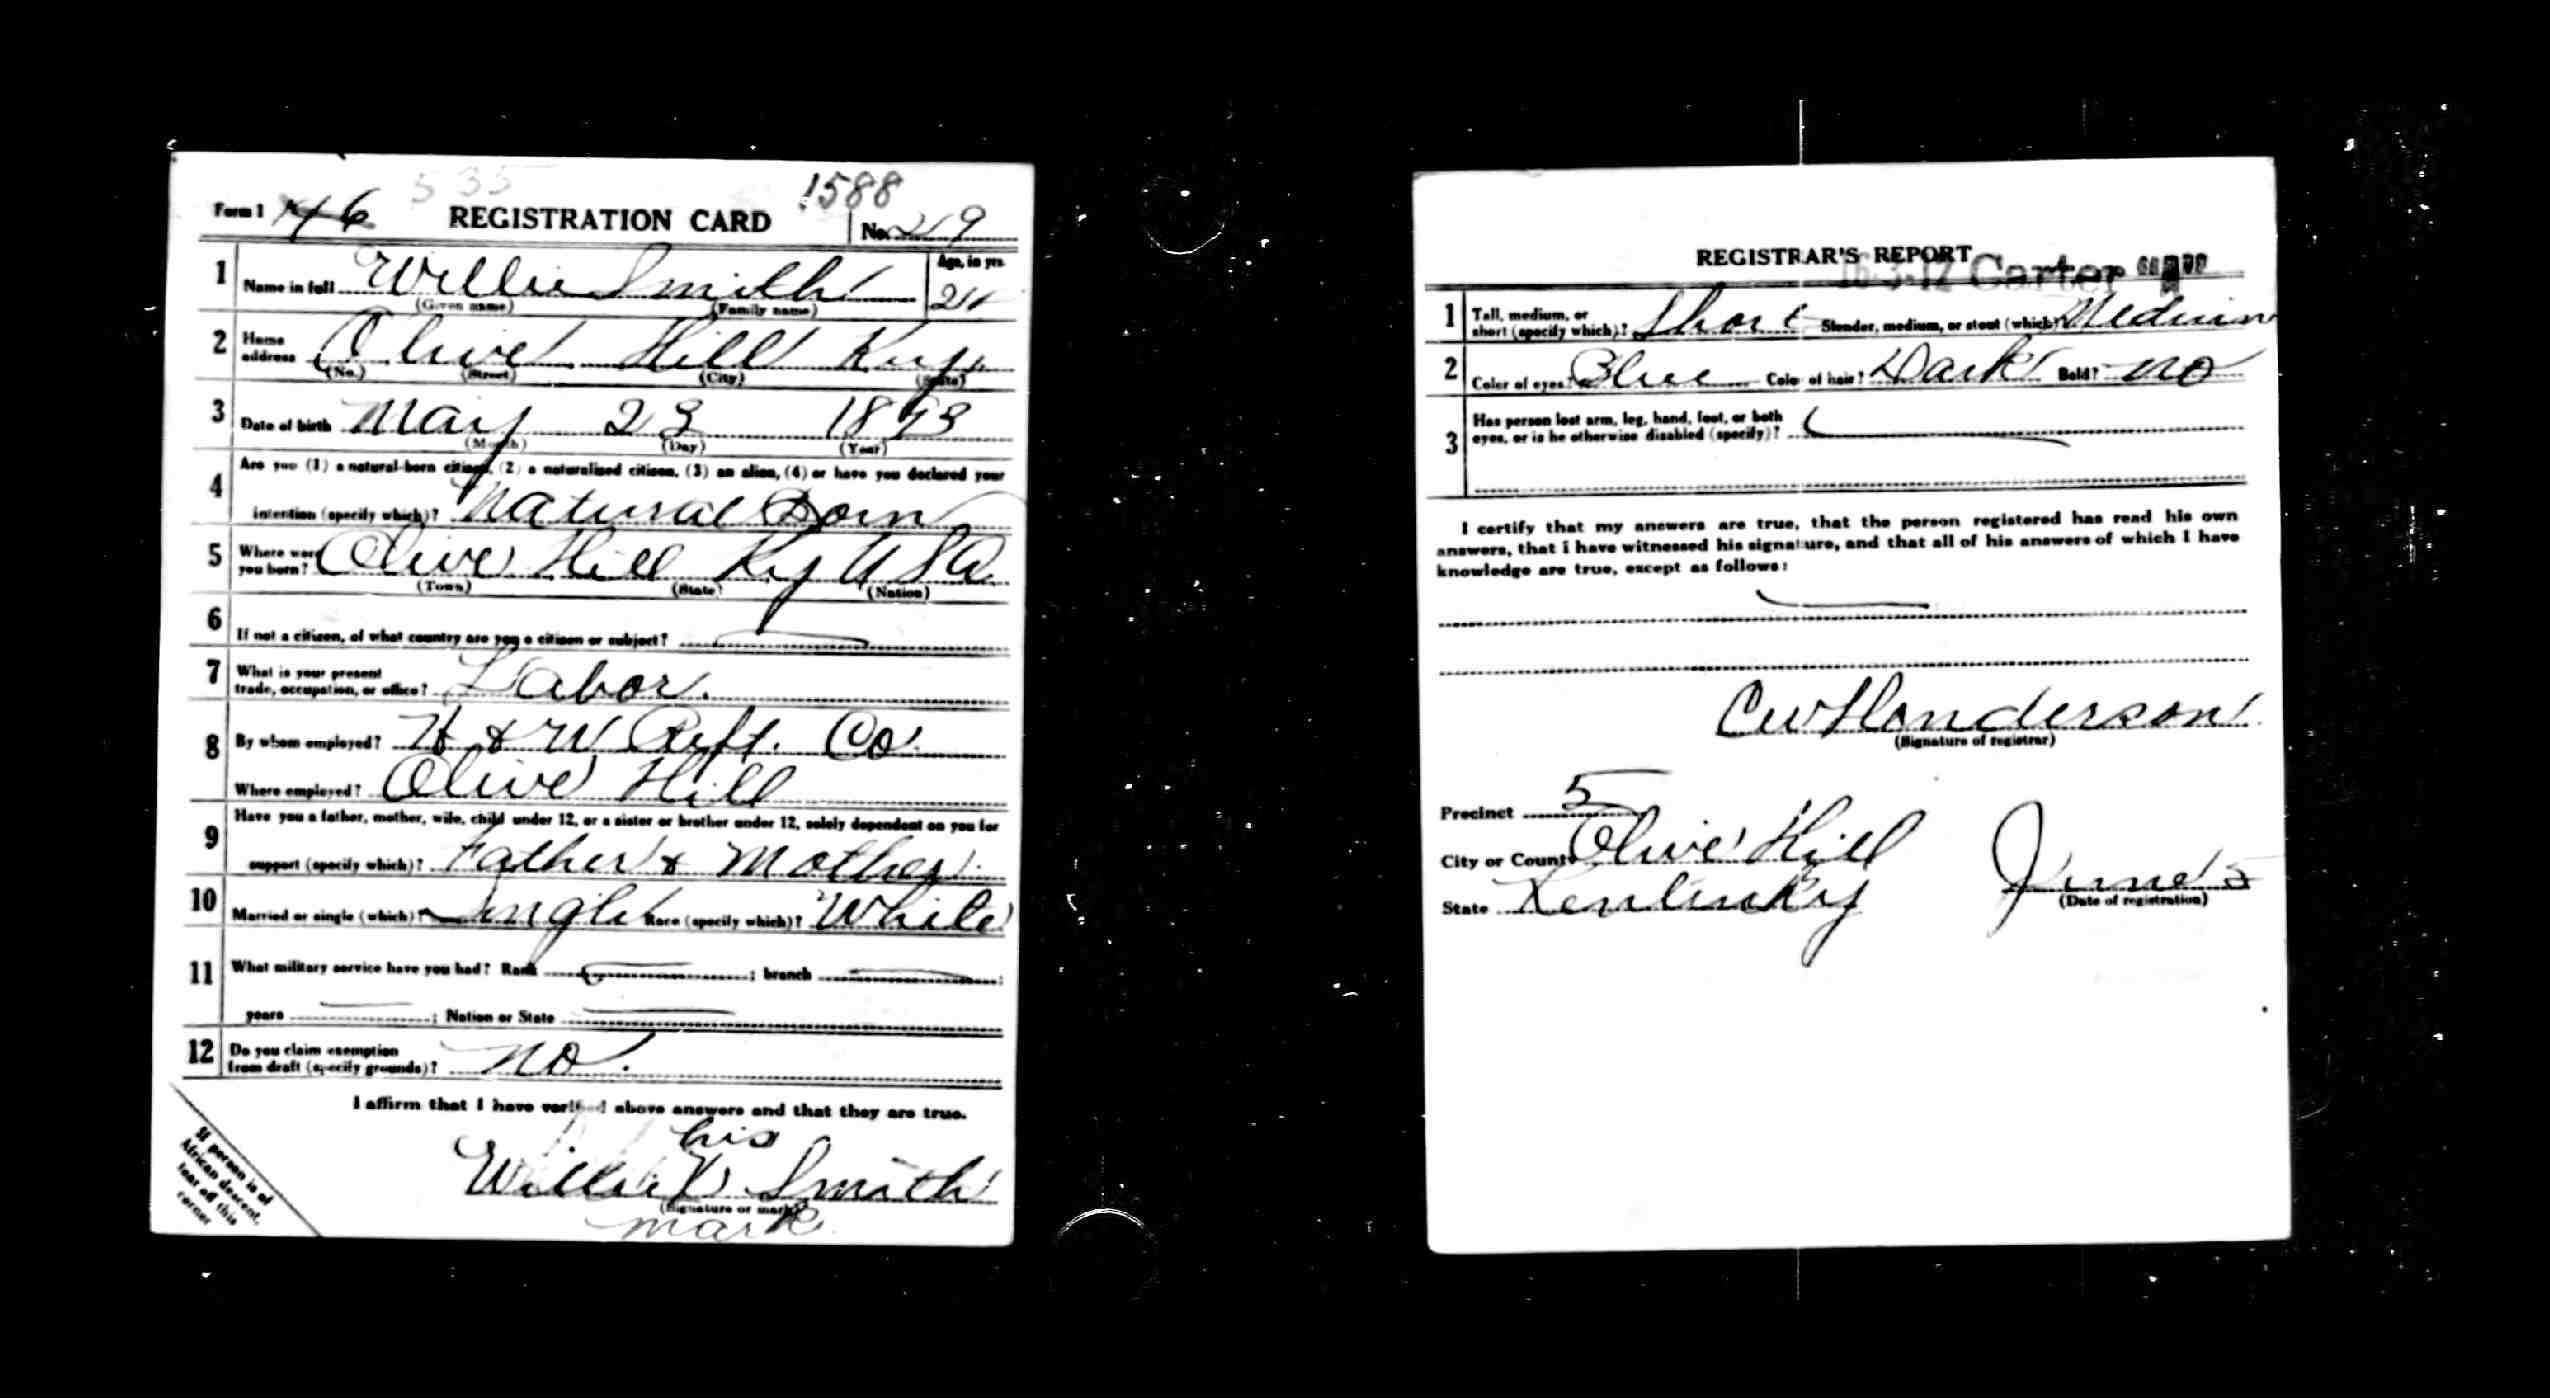 535
1588
Form 1 46 REGISTRATION CARD No. 219
1 Name in full Willie Smith Age, in yrs. 24
(Given name) (Family name)
2 Home address Olive Hill Ky.
(No.) (Street) (City) (State)
3 Date of birth May 23 1893
(Month) (Day) (Year)
4 Are you (1) a natural-born citizen, (2) a naturalized citizen, (3) an alien, (4) or have you declared your
intention (specify which)? Natural Born
5 Where were you born? Olive Hill Ky U S A
(Town) (State) (Nation)
6 If not a citizen, of what country are you a citizen or subject?
7 What is your present trade, occupation, or office? Labor.
8 By whom employed? H & W Reft. Co.
Where employed? Olive Hill
9 Have you a father, mother, wife, child under 12, or a sister or brother under 12, solely dependent on you for
support (specify which)? Father & Mother.
10 Married or single (which)? Single Race (specify which)? White
11 What military service have you had? Rank ; branch ;
years ; Nation or State
12 Do you claim exemption from draft (specify grounds)? No.
I affirm that I have verified above answers and that they are true.
his
Willie X Smith
(Signature or mark)
mark
If person is of
African descent,
tear off this
corner
REGISTRAR'S REPORT
16-3-12 Carter
1 Tall, medium, or short (specify which)? Short Slender, medium, or stout (which)? Medium
2 Color of eyes? Blue Color of hair? Dark Bald? No
3 Has person lost arm, leg, hand, foot, or both
eyes, or is he otherwise disabled (specify)?
I certify that my answers are true, that the person registered has read his own
answers, that I have witnessed his signature, and that all of his answers of which I have
knowledge are true, except as follows:
C W Henderson
(Signature of registrar)
Precinct 5
City or County Olive Hill
State Kentucky June 5
(Date of registration)